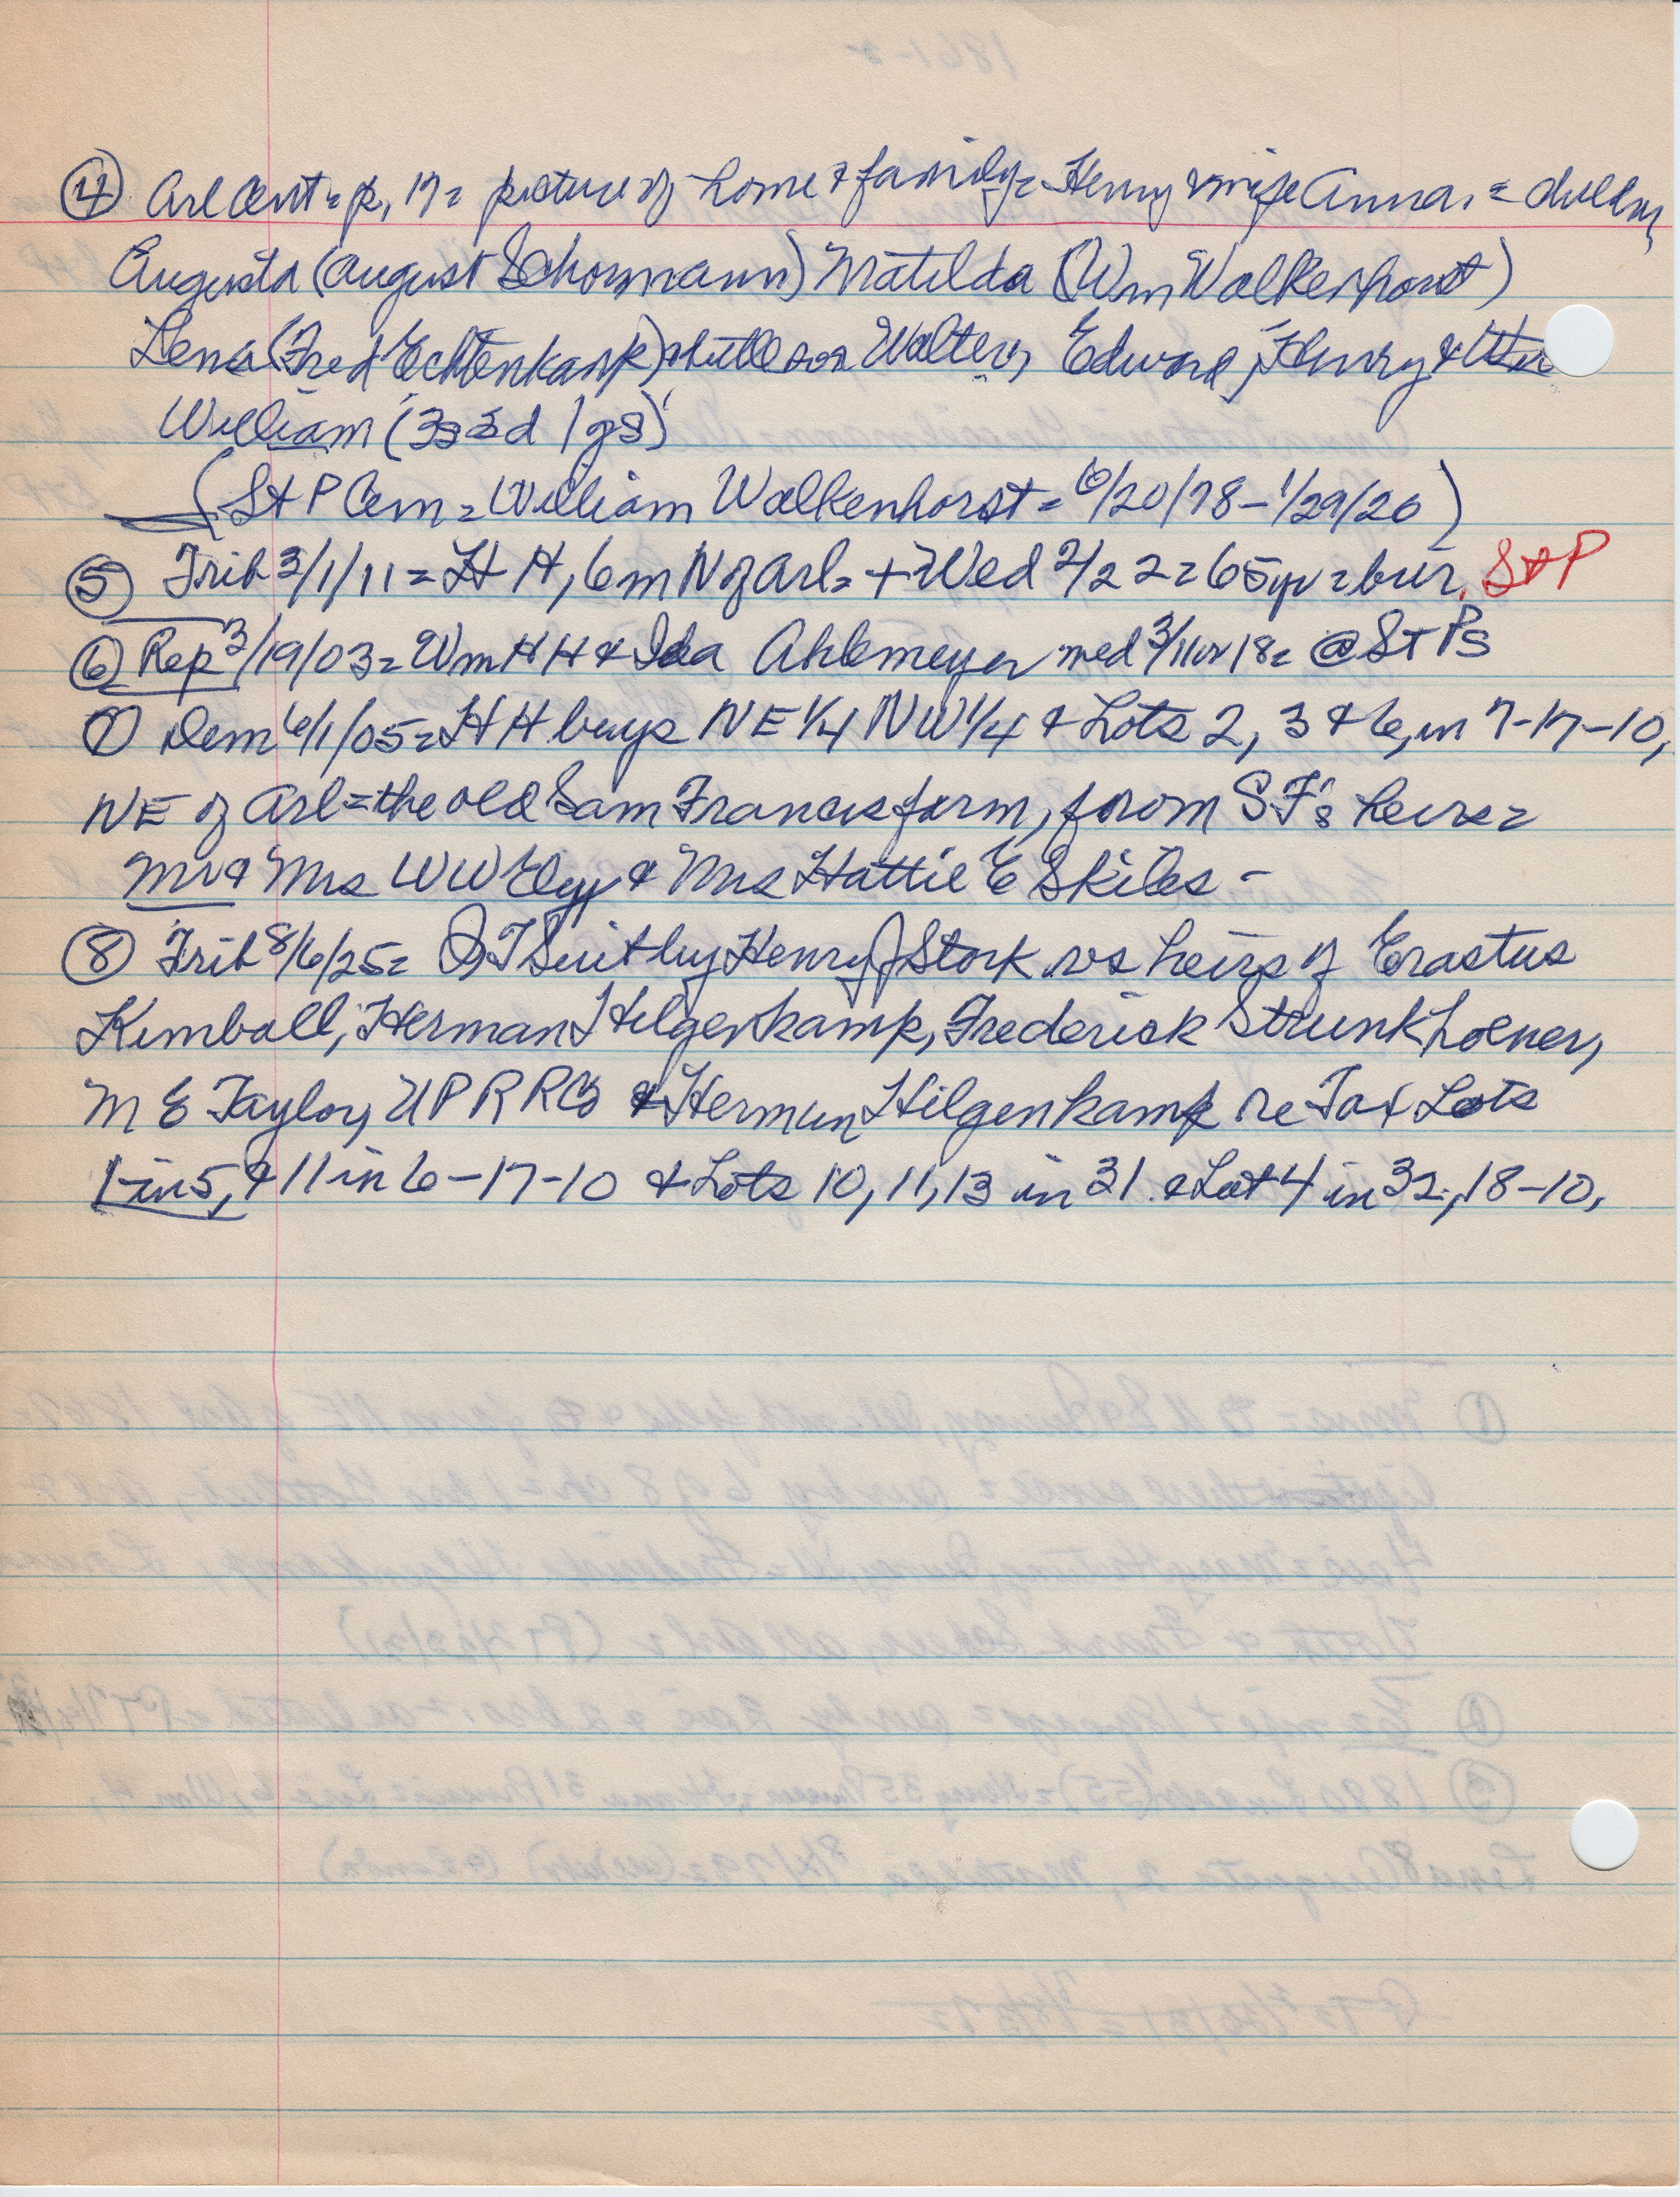 ④ Arl Cent = p. 17 = picture of home & family = Henry & wife Anna. = children,
Augusta (August Schormann) Matilda (Wm Walkenhorst)
Lena (Fred Echtenkamp) & little son Walter, Edward, Henry &
William (3s 3d 1 gs)
(St P Cem = William Walkenhorst = 6/20/78 - 1/29/20)
⑤ Trib 3/1/11 = H H, 6 m N of Arl = + Wed 2/22 = 65 yr = bur. St P
⑥ Rep 3/19/03 = Wm H H & Ida Ahlemeyer med 3/11 or 18 = @ St Ps
⑦ Dem 6/1/05 = H H buys NE 1/4 NW 1/4 & Lots 2, 3 & 6, in 7-17-10,
NE of Arl = the old Sam Francis farm, from S F's heirs =
Mr & Mrs W W & Mrs Hattie E Skiles -
⑧ Trib 8/6/25 = Q T Suit by Henry J Stork vs heirs of Erastus
Kimball, Herman Hilgenkamp, Frederick Strunkhoener,
M E Taylor, U P R R Co & Herman Hilgenkamp re Tax Lots
1 in 5, & 11 in 6-17-10 & Lots 10, 11, 13 in 31 & Lot 4 in 32, 18-10,